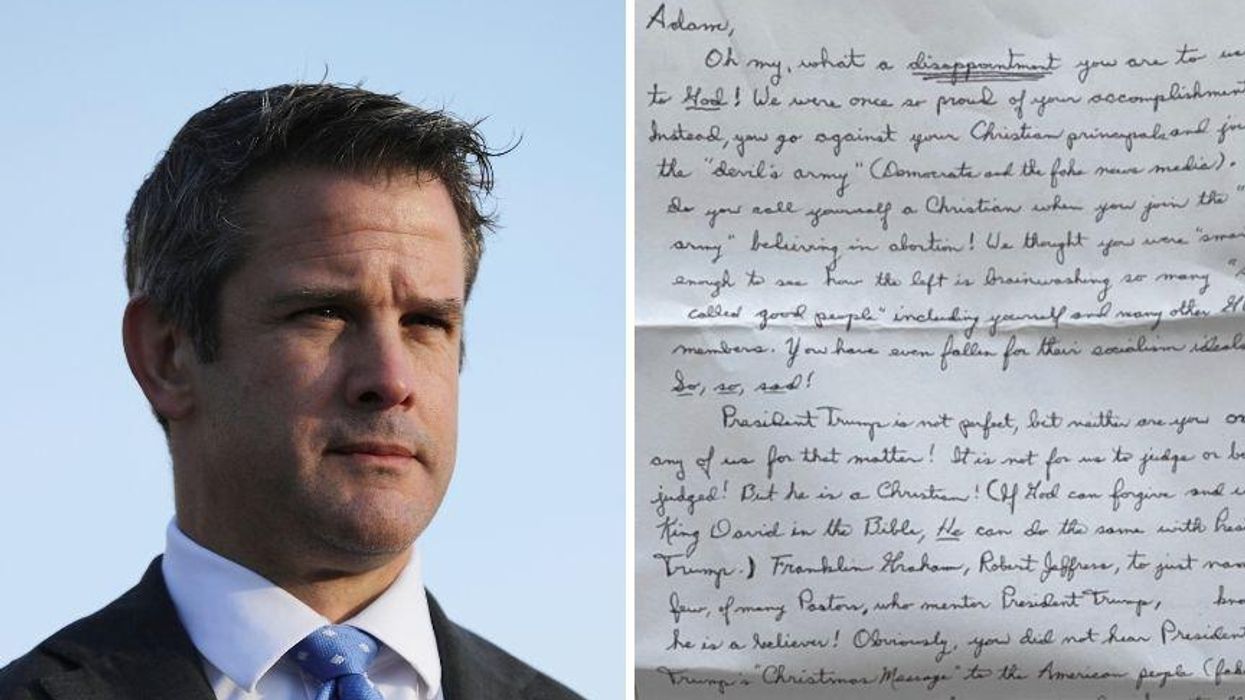 Adam,
Oh my, what a disappointment you are to us
to God! We were once so proud of your accomplishment
Instead, you go against your Christian principals and jo
the "devil's army" (Democrats and the fake news media).
do you call yourself a Christian when you join the "
army" believing in abortion! We thought you were "smar
enough to see how the left is brainwashing so many "
called good people" including yourself and many other
members. You have even fallen for their socialism ideals
So, so, sad!
President Trump is not perfect, but neither are you or
any of us for that matter! It is not for us to judge or be
judged! But he is a Christian! (If God can forgive and
King David in the Bible, He can do the same with Pres
Trump.) Franklin Graham, Robert Jeffress, to just nam
few, of many Pastors, who mentor President Trump, kno
he is a believer! Obviously, you did not hear President
Trump's "Christmas Message" to the American people (fak